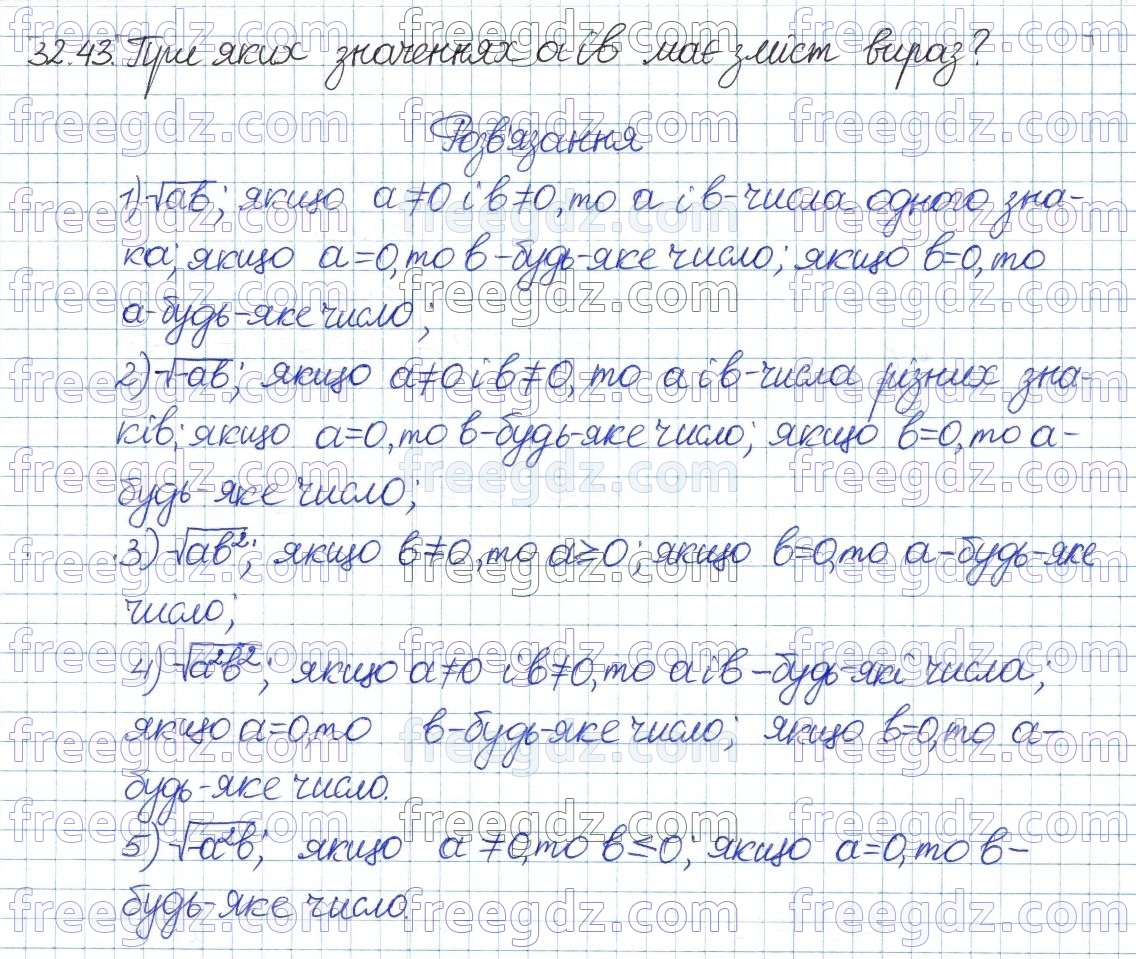 32.43. При яких значеннях a і b має зміст вираз?
Розв'язання
1) √ab; якщо a≠0 і b≠0, то a і b - числа одного зна-
ка; якщо a=0, то b - будь-яке число; якщо b=0, то
a - будь-яке число;
2) √-ab; якщо a≠0 і b≠0, то a і b - числа різних зна-
ків; якщо a=0, то b - будь-яке число; якщо b=0, то a -
будь-яке число;
3) √ab²; якщо b≠0, то a≥0; якщо b=0, то a - будь-яке
число;
4) √a²b²; якщо a≠0 і b≠0, то a і b - будь-які числа;
якщо a=0, то b - будь-яке число; якщо b=0, то a -
будь-яке число.
5) √-a²b; якщо a≠0, то b≤0; якщо a=0, то b -
будь-яке число.
freegdz.com